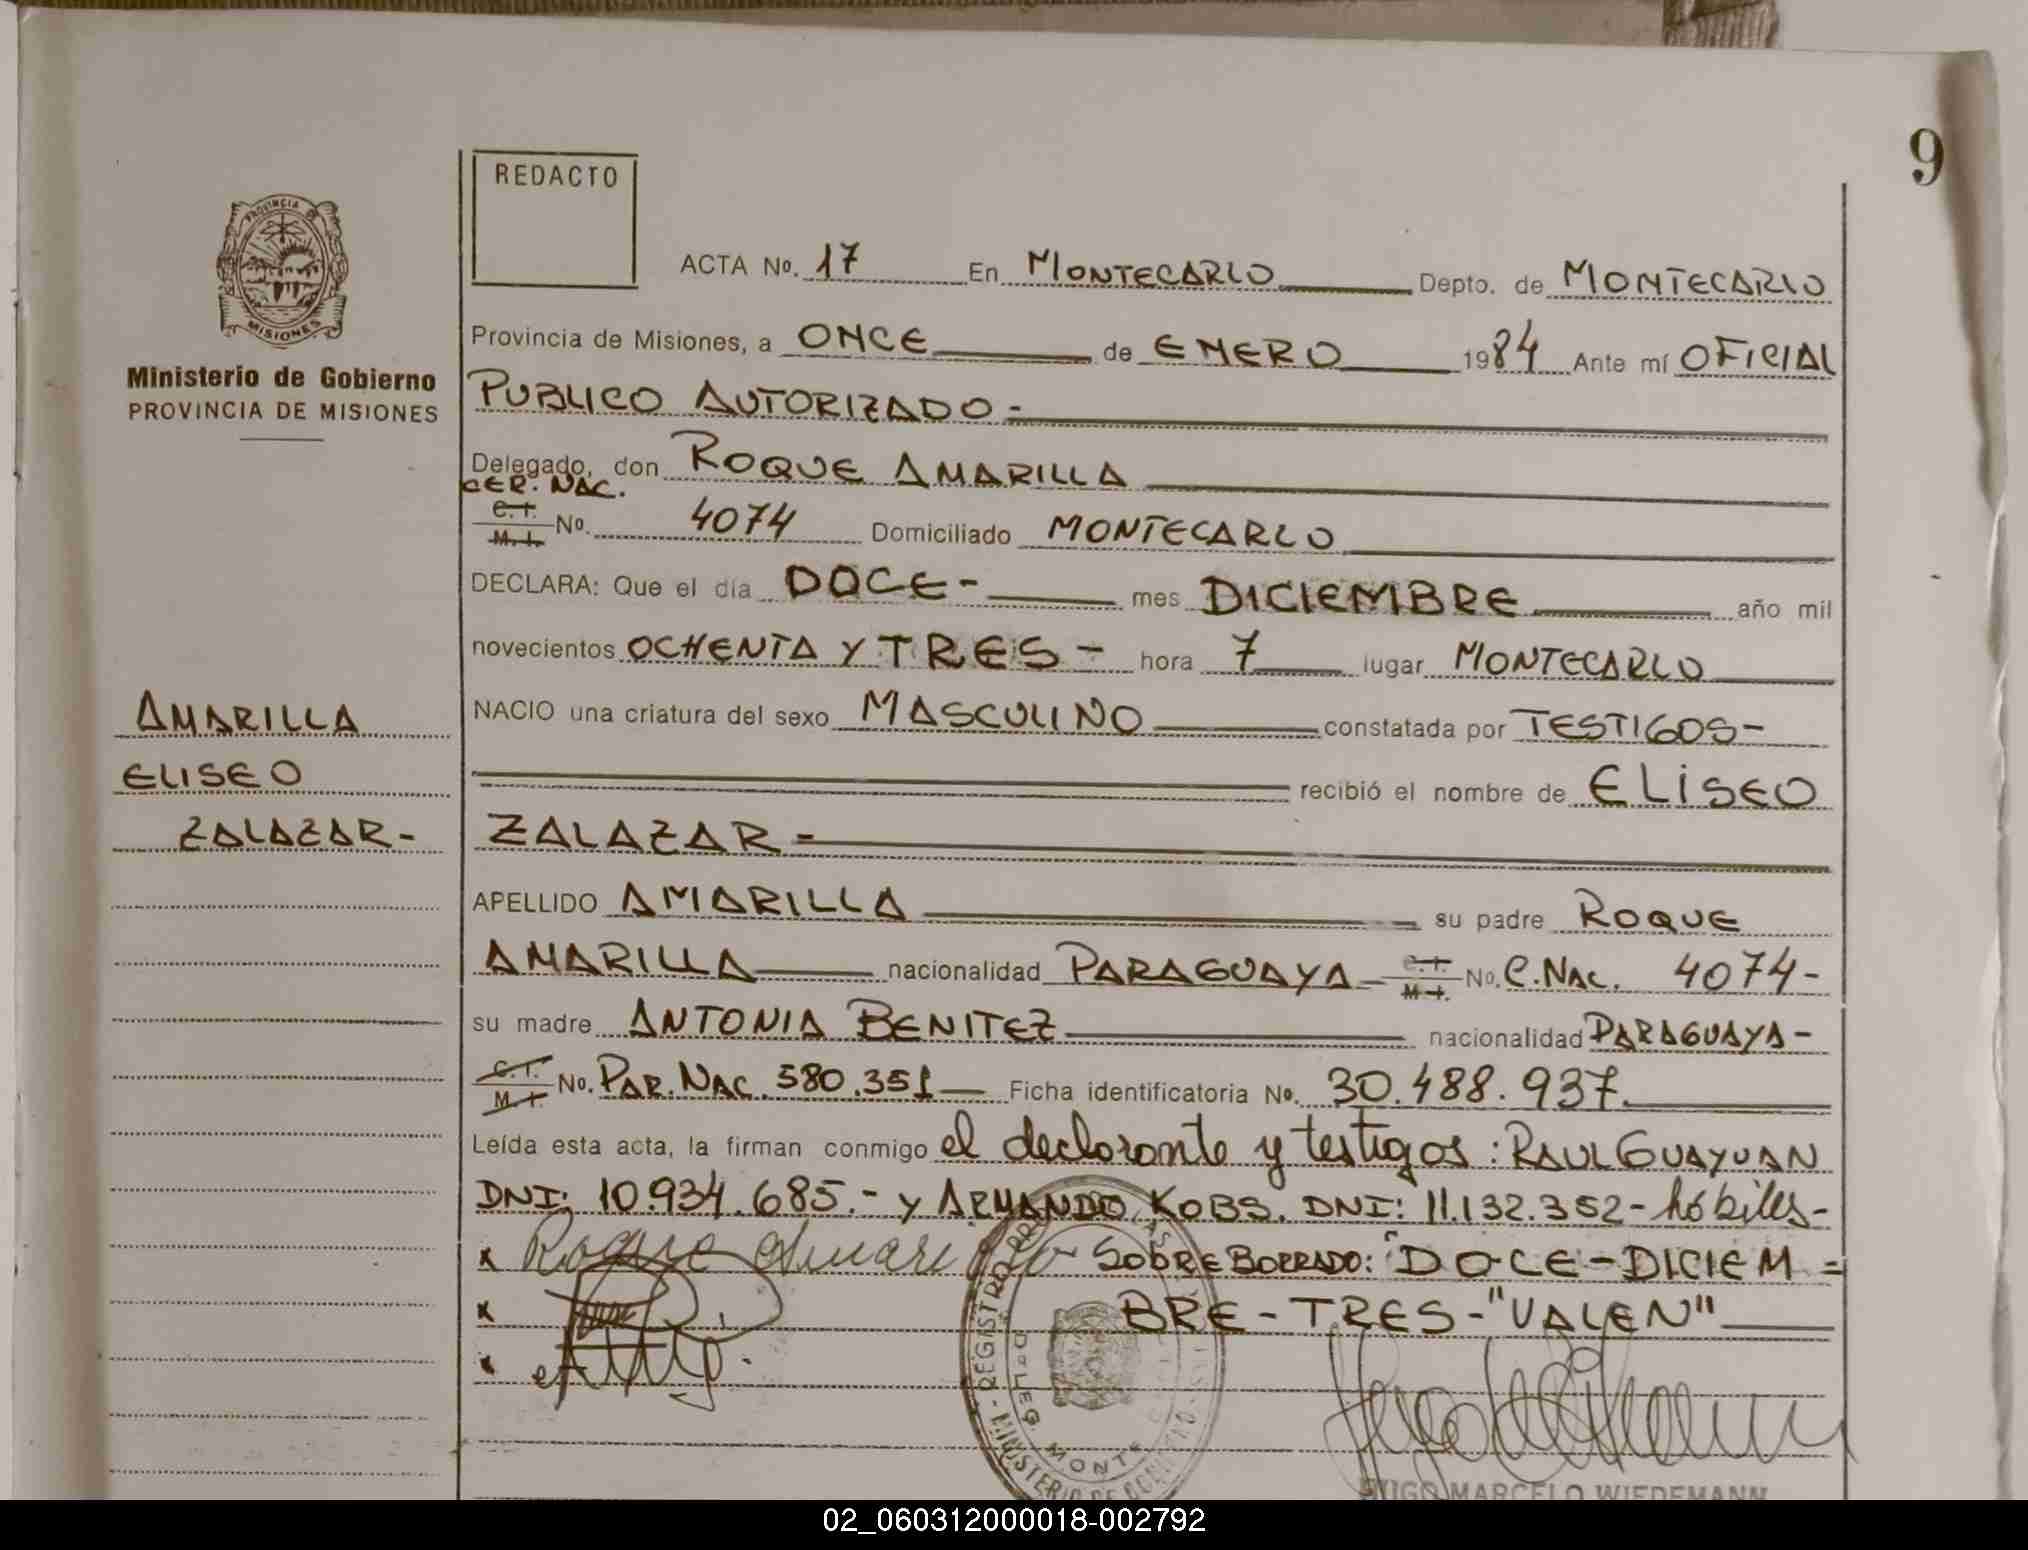 9
REDACTO
PROVINCIA DE
MISIONES
Ministerio de Gobierno
PROVINCIA DE MISIONES
ACTA No. 17 En MONTECARLO Depto. de MONTECARLO
Provincia de Misiones, a ONCE de ENERO 1984 Ante mí OFICIAL
PUBLICO AUTORIZADO -
Delegado, don ROQUE AMARILLA
CER. NAC.
C. I.
M. I. No. 4074 Domiciliado MONTECARLO
DECLARA: Que el día DOCE - mes DICIEMBRE año mil
novecientos OCHENTA Y TRES - hora 7 lugar MONTECARLO
NACIO una criatura del sexo MASCULINO constatada por TESTIGOS -
recibió el nombre de ELISEO
ZALAZAR -
APELLIDO AMARILLA su padre ROQUE
AMARILLA nacionalidad PARAGUAYA - C. I. M. I. No. C. NAC. 4074 -
su madre ANTONIA BENITEZ nacionalidad PARAGUAYA -
C. I. M. I. No. PAR. NAC. 580.351 Ficha identificatoria No. 30.488.937.
Leída esta acta, la firman conmigo el declarante y testigos : RAUL GUAYUAN
DNI: 10.934.685.- Y ARMANDO KOBS. DNI: 11.132.352 - hábiles -
x Roque Amarilla SOBRE BORRADO: "DOCE - DICIEM =
x BRE - TRES - "VALEN"
x
AMARILLA
ELISEO
ZALAZAR -
REGISTRO
MINISTERIO DE GOBIERNO
DELEG. MONTE
HUGO MARCELO WIEDEMANN
02_060312000018-002792